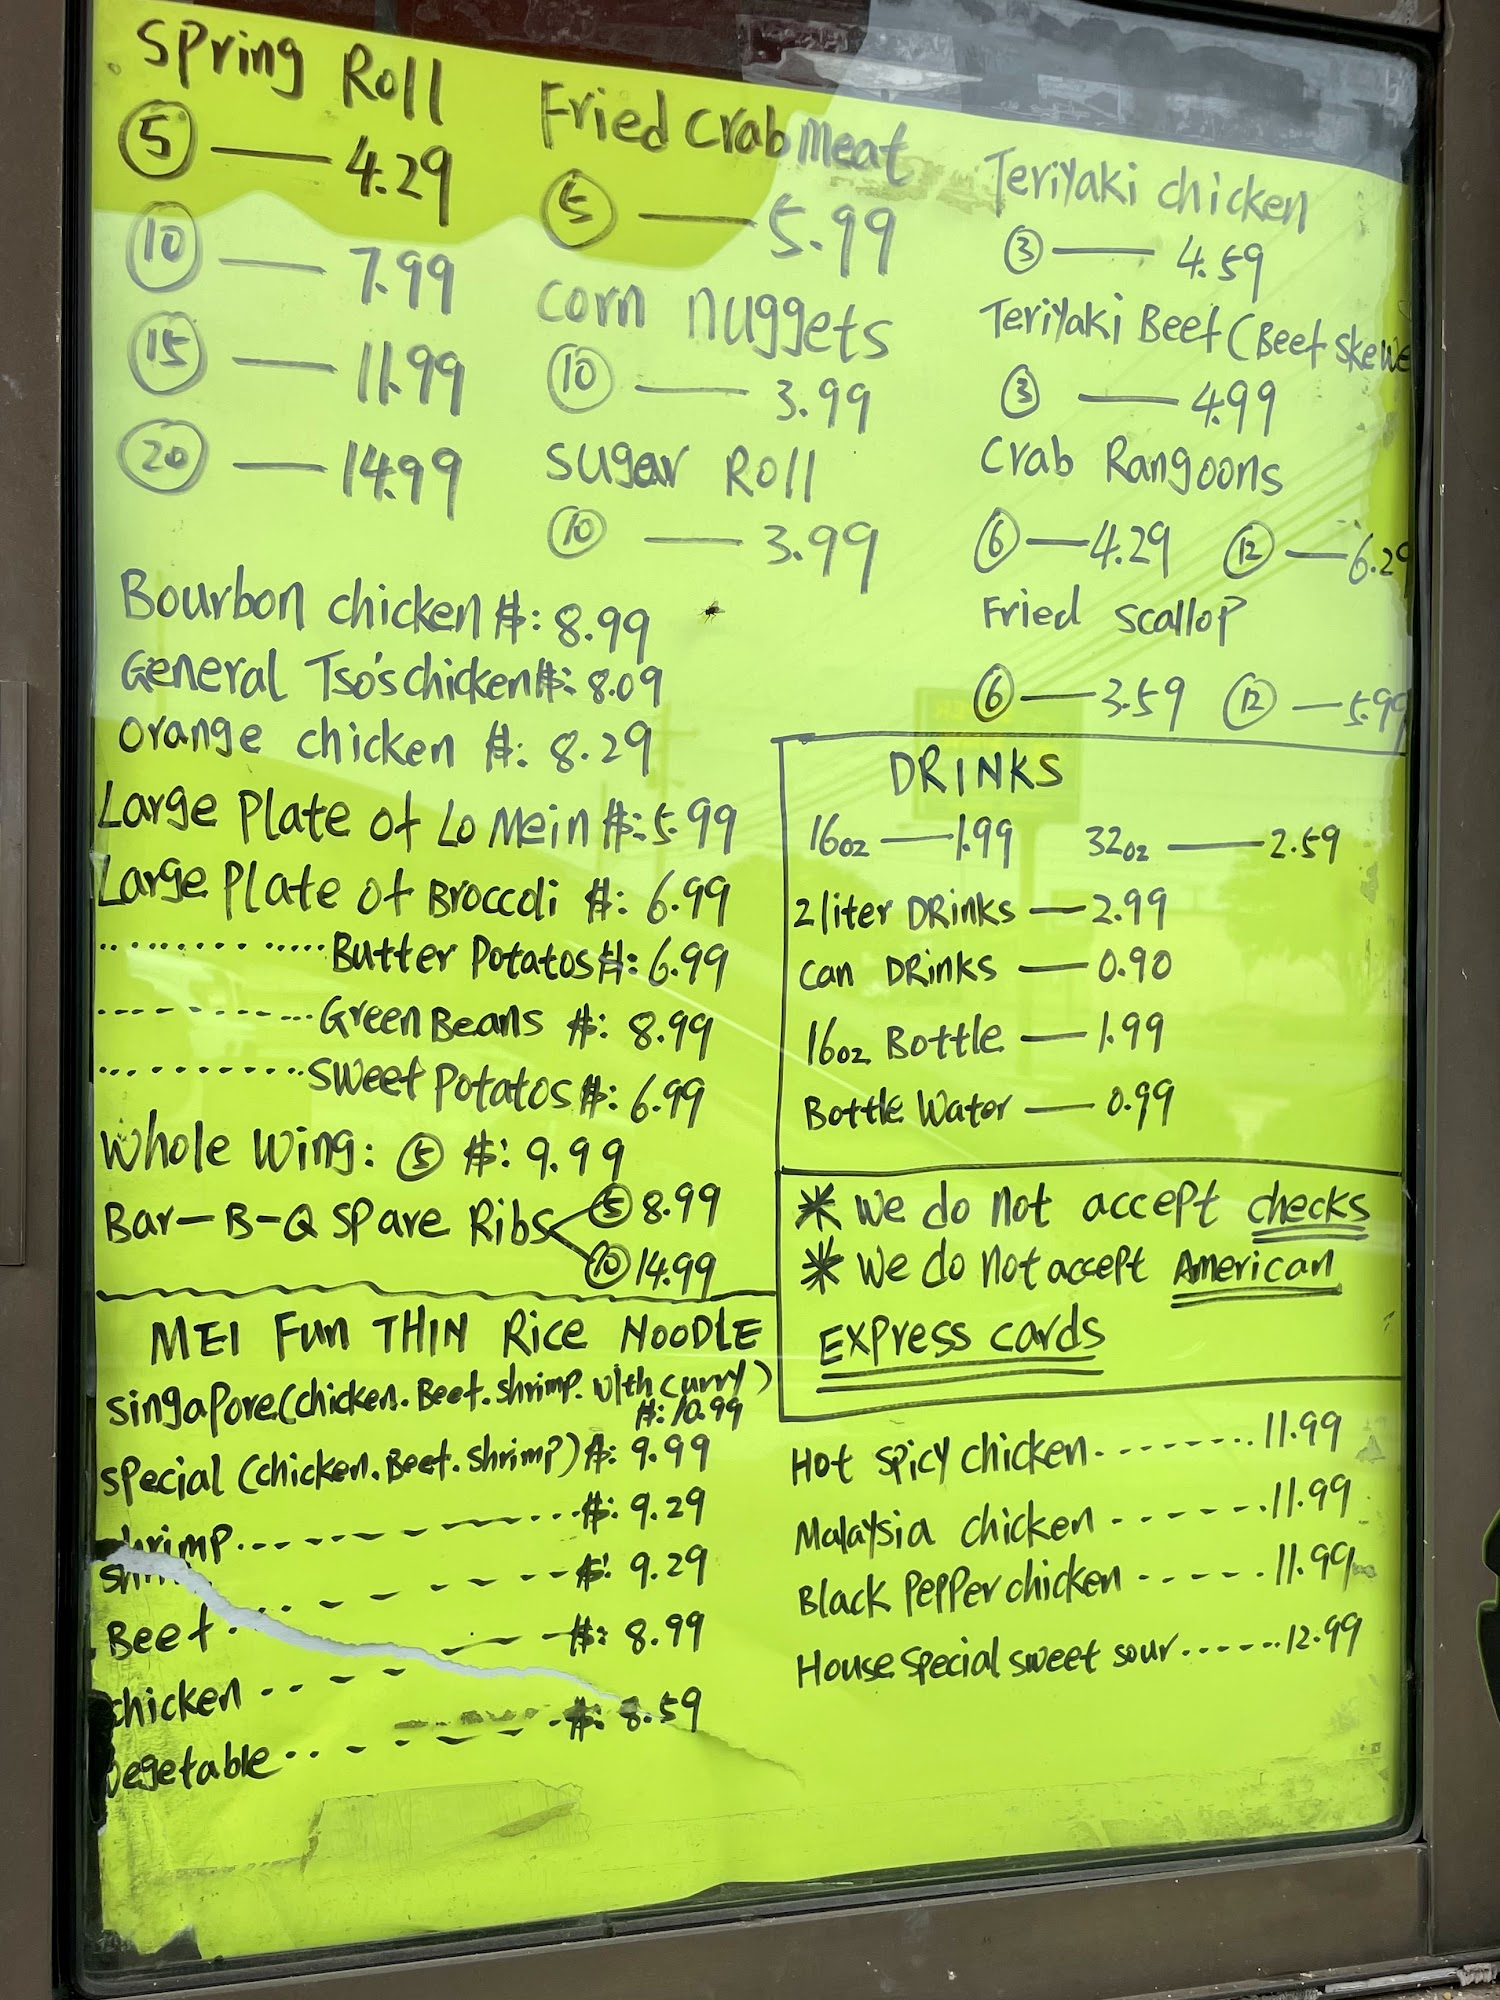 Spring Roll
5 — 4.29
10 — 7.99
15 — 11.99
20 — 14.99
Fried Crab Meat
5 — 5.99
Corn nuggets
10 — 3.99
Sugar Roll
10 — 3.99
Teriyaki chicken
3 — 4.59
Teriyaki Beef (Beef skewe
3 — 4.99
Crab Rangoons
6 — 4.29 12 — 6.29
Fried scallop
6 — 3.59 12 — 5.99
Bourbon chicken $: 8.99
General Tso's chicken $: 8.09
Orange chicken $: 8.29
Large Plate of Lo Mein $: 5.99
Large Plate of Broccoli $: 6.99
.............. Butter Potatos $: 6.99
----------- Green Beans $: 8.99
........... Sweet Potatos $: 6.99
Whole Wing: 5 $: 9.99
Bar-B-Q Spare Ribs 5 8.99
10 14.99
DRINKS
16oz — 1.99 32oz — 2.59
2 liter DRinks — 2.99
Can DRinks — 0.90
16oz Bottle — 1.99
Bottle Water — 0.99
* We do not accept checks
* We do not accept American
Express cards
MEI Fun THIN Rice NOODLE
Singapore (chicken. Beef. shrimp. with curry)
$: 10.99
Special (chicken. Beef. shrimp) $: 9.99
shrimp ------------ $: 9.29
Beef ------------ $: 9.29
chicken ------------ $: 8.99
Vegetable ------------ $: 8.59
Hot Spicy chicken -------- 11.99
Malaysia chicken ------ 11.99
Black Pepper chicken ----- 11.99
House Special sweet sour ------ 12.99